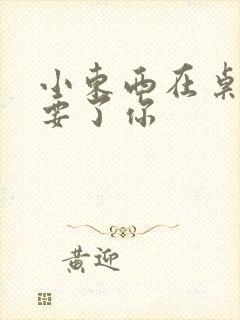 小东西在桌
要了你
黄迎